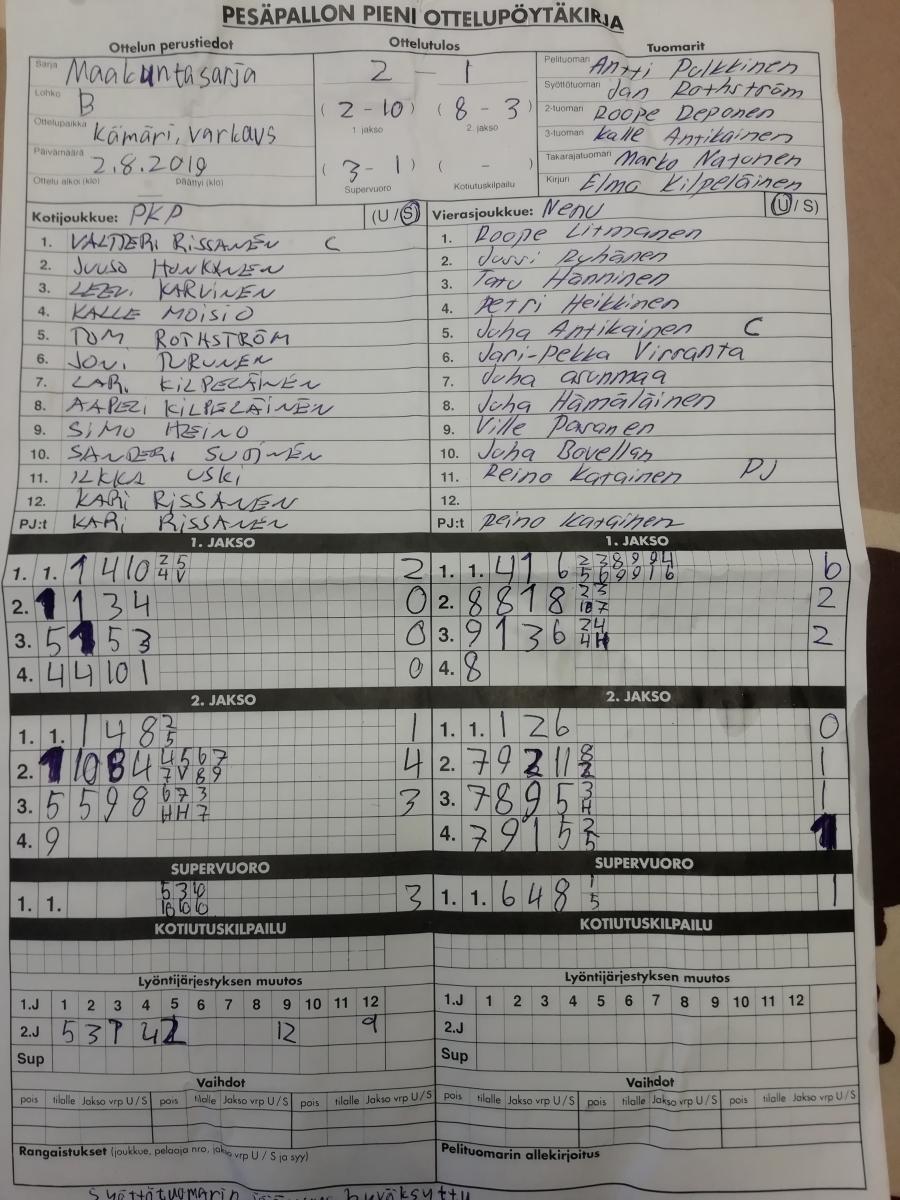 PESÄPALLON PIENI OTTELUPÖYTÄKIRJA
Ottelun perustiedot
Sarja Maakuntasarja
Lohko B
Ottelupaikka Kämäri, Varkaus
Päivämäärä 2.8.2019
Ottelu alkoi (klo) Päättyi (klo)
Ottelutulos
2 - 1
(2-10) (8-3)
1. jakso 2. jakso
(3-1) ( - )
Supervuoro Kotiutuskilpailu
Tuomarit
Pelituomari Antti Pulkkinen
Syöttötuomari Jan Rothström
2-tuomari Roope Deponen
3-tuomari Kalle Antikainen
Takarajatuomari Marko Natunen
Kirjuri Elmo Kilpeläinen
Kotijoukkue: PKP (U/S)
1. VALTTERI RISSANEN C
2. JUUSO HUNKANEN
3. LEEVI KARVINEN
4. KALLE MOISIO
5. TOMI ROTHSTRÖM
6. JONI TURUNEN
7. LARI KILPELÄINEN
8. AAPELI KILPELÄINEN
9. SIMO HEINO
10. SANDERI
11. ILKKA USKI
12. KARI RISSANEN
PJ:t KARI RISSANEN
Vierasjoukkue: Nenu (U/S)
1. Roope Litmanen
2. Jussi Ryhänen
3. Tatu Hänninen
4. Petri Heikkinen
5. Juha Antikainen C
6. Jari-Pekka Virranta
7. Juha asunmaa
8. Juha Hämäläinen
9. Ville Paranen
10. Juha Bovellan
11. Reino Karainen PJ
12.
PJ:t Reino Karainen
1. JAKSO
1. 1. 1 4 10 2 5 2
4 V
2. 1 1 3 4 0
3. 5 1 5 3 0
4. 4 4 10 1 0
2. JAKSO
1. 1. 1 4 8 2 1
5
2. 1 10 8 4 4 5 6 7 4
7 V 8 9
3. 5 5 9 8 6 7 3 3
H H 7
4. 9
SUPERVUORO
1. 1. 5 3 10 3
10 10 10
KOTIUTUSKILPAILU
1. JAKSO
1. 1. 4 1 6 2 3 8 9 9 4 6
5 6 9 9 1 6
2. 8 8 1 8 2 3 2
10 7
3. 9 1 3 6 2 4 2
4 H
4. 8
2. JAKSO
1. 1. 1 2 6 0
2. 7 9 2 11 8 1
2
3. 7 8 9 5 3 1
H
4. 7 9 1 5 2 1
5
SUPERVUORO
1. 1. 6 4 8 1 1
5
KOTIUTUSKILPAILU
Lyöntijärjestyksen muutos
1.J 1 2 3 4 5 6 7 8 9 10 11 12
2.J 5 3 1 4 2 12 9
Sup
Vaihdot
pois tilalle Jakso vrp U/S pois tilalle Jakso vrp U/S pois tilalle Jakso vrp U/S
Rangaistukset (joukkue, pelaaja nro, jakso vrp U/S ja syy)
Lyöntijärjestyksen muutos
1.J 1 2 3 4 5 6 7 8 9 10 11 12
2.J
Sup
Vaihdot
pois tilalle Jakso vrp U/S pois tilalle Jakso vrp U/S pois tilalle Jakso vrp U/S
Pelituomarin allekirjoitus
Syöttötuomarin hyväksytty